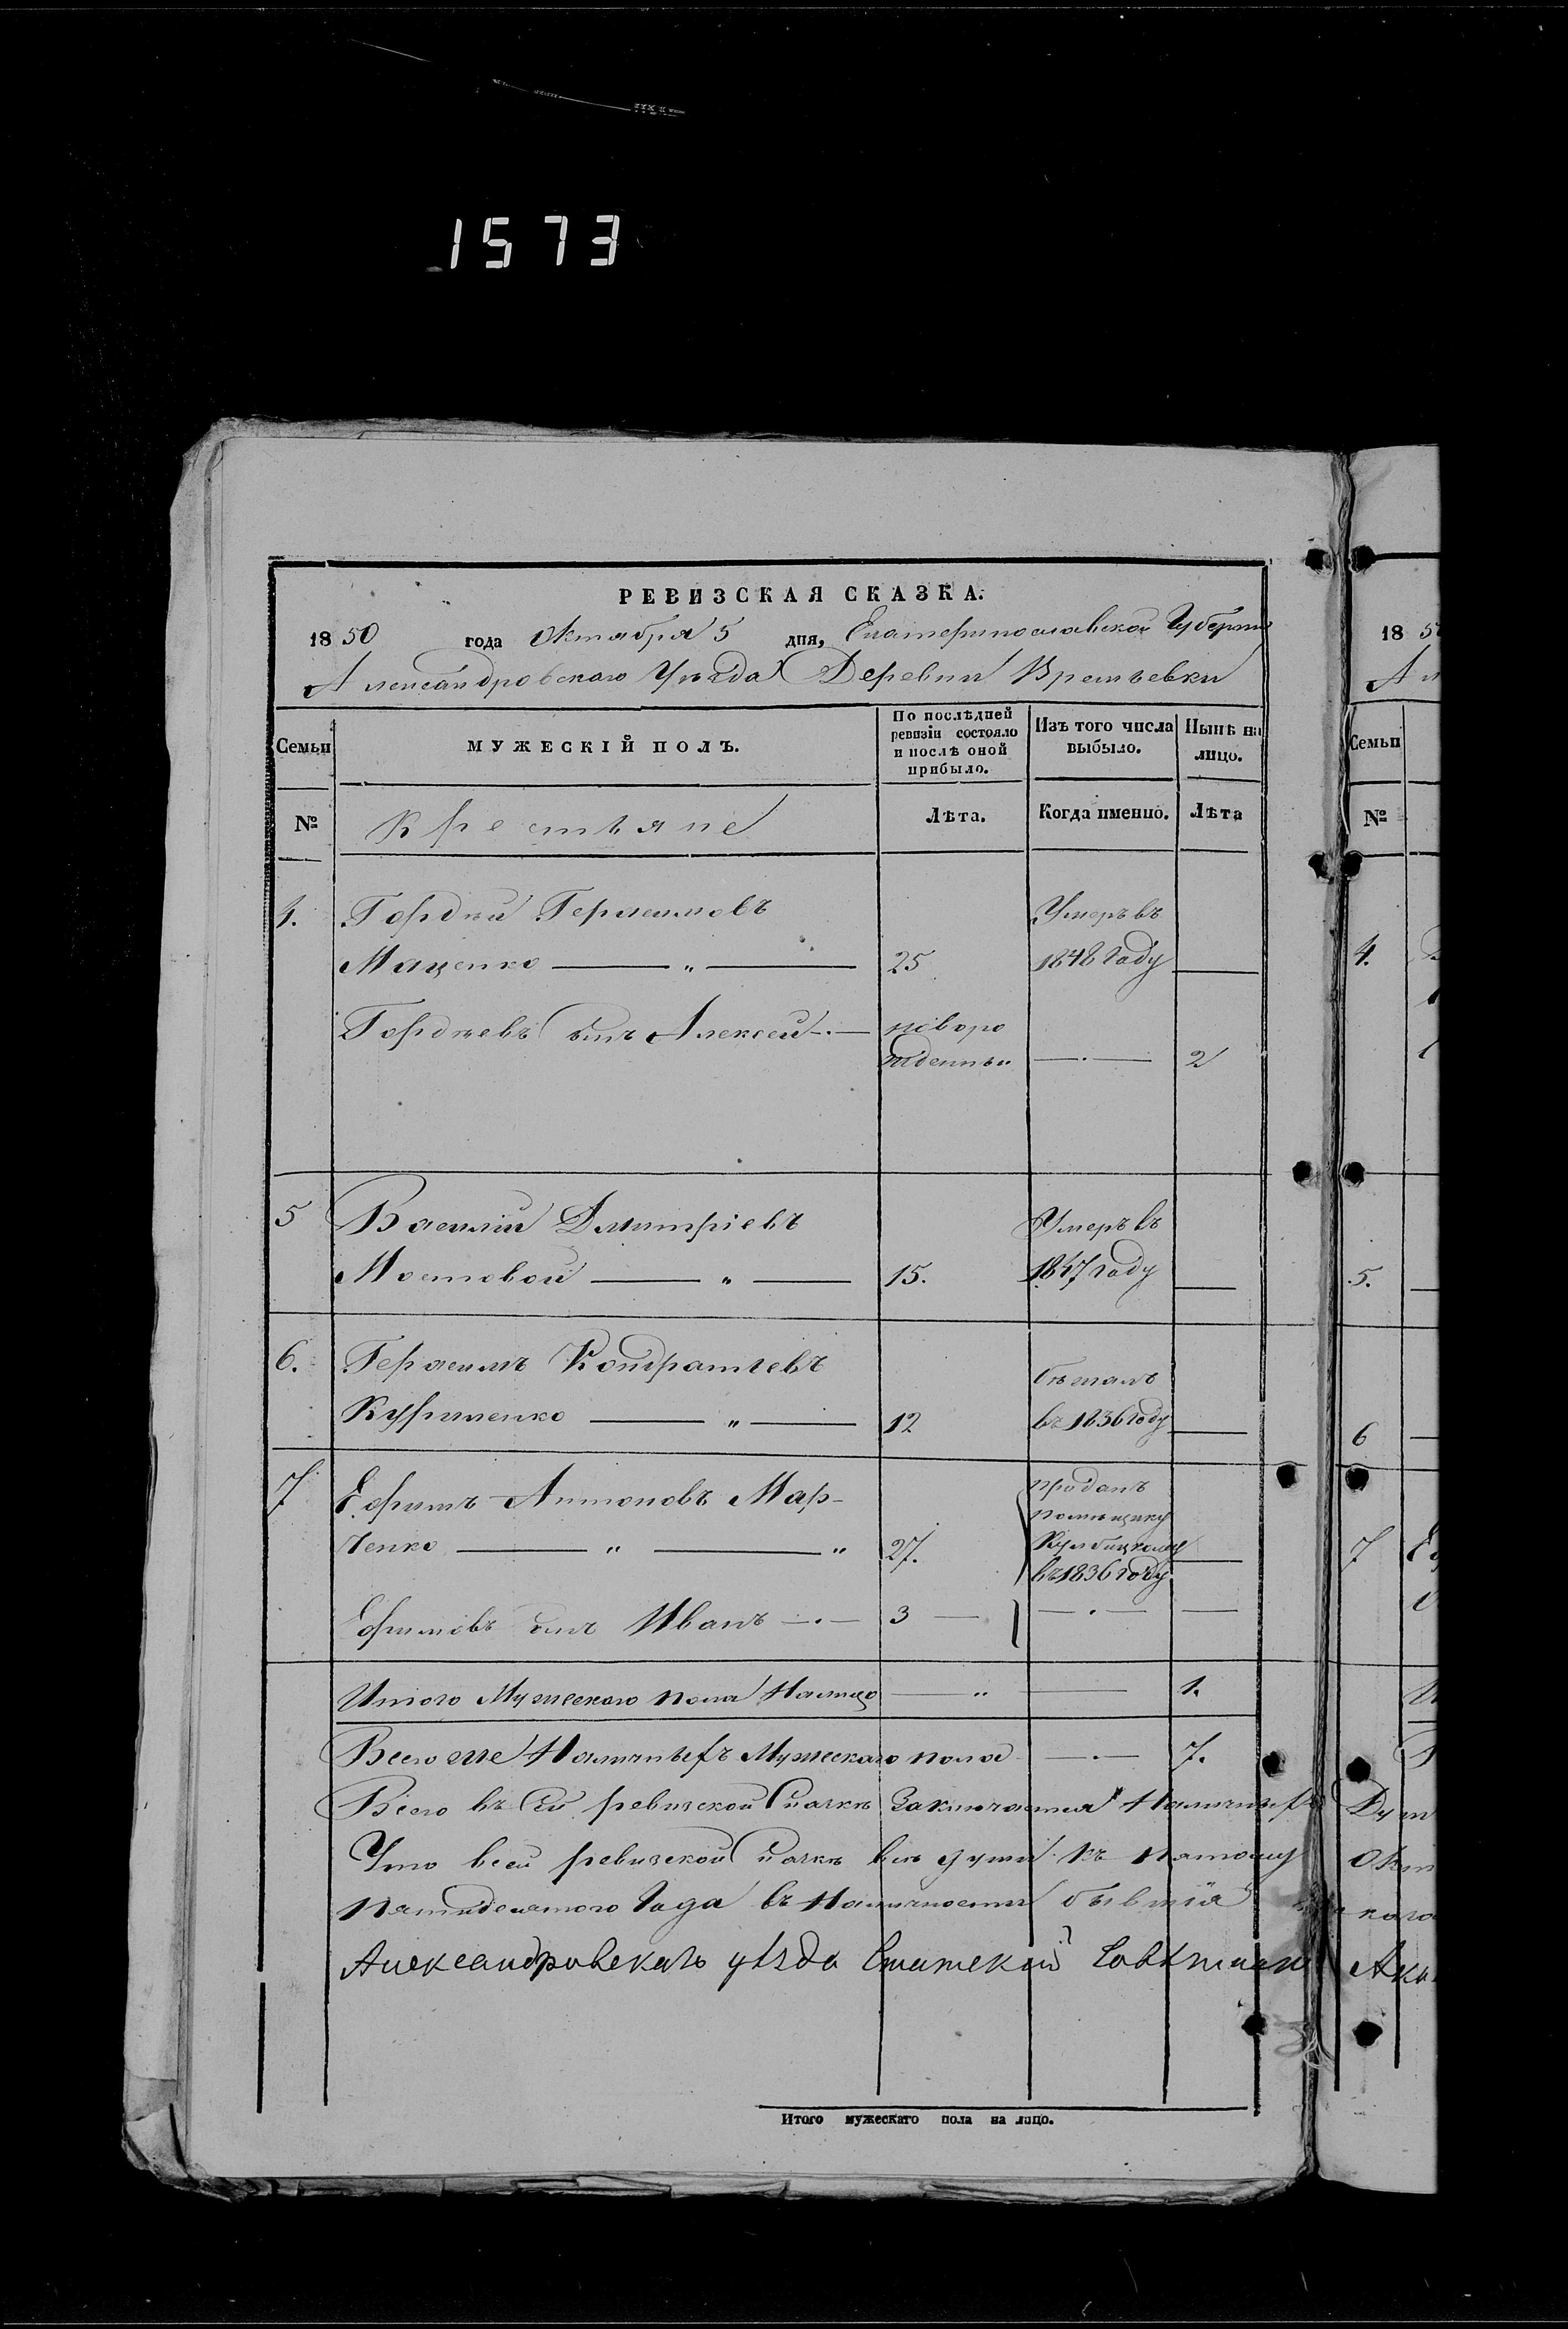 1573
РЕВИЗСКАЯ СКАЗКА.
1850 года Октября 5 дня, Екатеринославской Губерніи
Александровскаго Уѣзда Деревни Времьевки
Семьи
МУЖЕСКІЙ ПОЛЪ.
По послѣдней ревизіи состояло и послѣ оной прибыло.
Изъ того числа выбыло.
Нынѣ на лицо.
№
Крестьяне
Лѣта.
Когда именно.
Лѣта
4. Гордѣй Герасимовъ Умеръ въ
Маценко — „ — 25 1848 году —
Гордѣевъ сынъ Алексей —.— новоро
жденный —.— 2
5 Василій Дмитріевъ Умеръ въ
Мостовой — „ — 15. 1847 году —
6. Герасимъ Кондратьевъ бѣжалъ
Куриленко — „ — 12 въ 1836 году —
7 Ефимъ Антоновъ Мар- проданъ
помѣщику
ченко — „ — „ 27. —
въ 1836 году
Ефимовъ сынъ Иванъ —.— 3 — —.— —
Итого Мужескаго пола Налицо — „ — 1.
Всего же Наличныхъ Мужескаго пола —.— 7.
Всего въ сей ревизской Сказкѣ Заключается Наличныхъ
Что всей ревизской Сказкѣ всѣ души къ пятому
пятидесятого Года въ Наличности бывшія
Александровскаго уѣзда Статской Совѣтникъ
Итого мужескаго пола на лицо.
18 5
Ал
Семьи
№
4.
5.
6
7 Е
Душ
Окт
каго